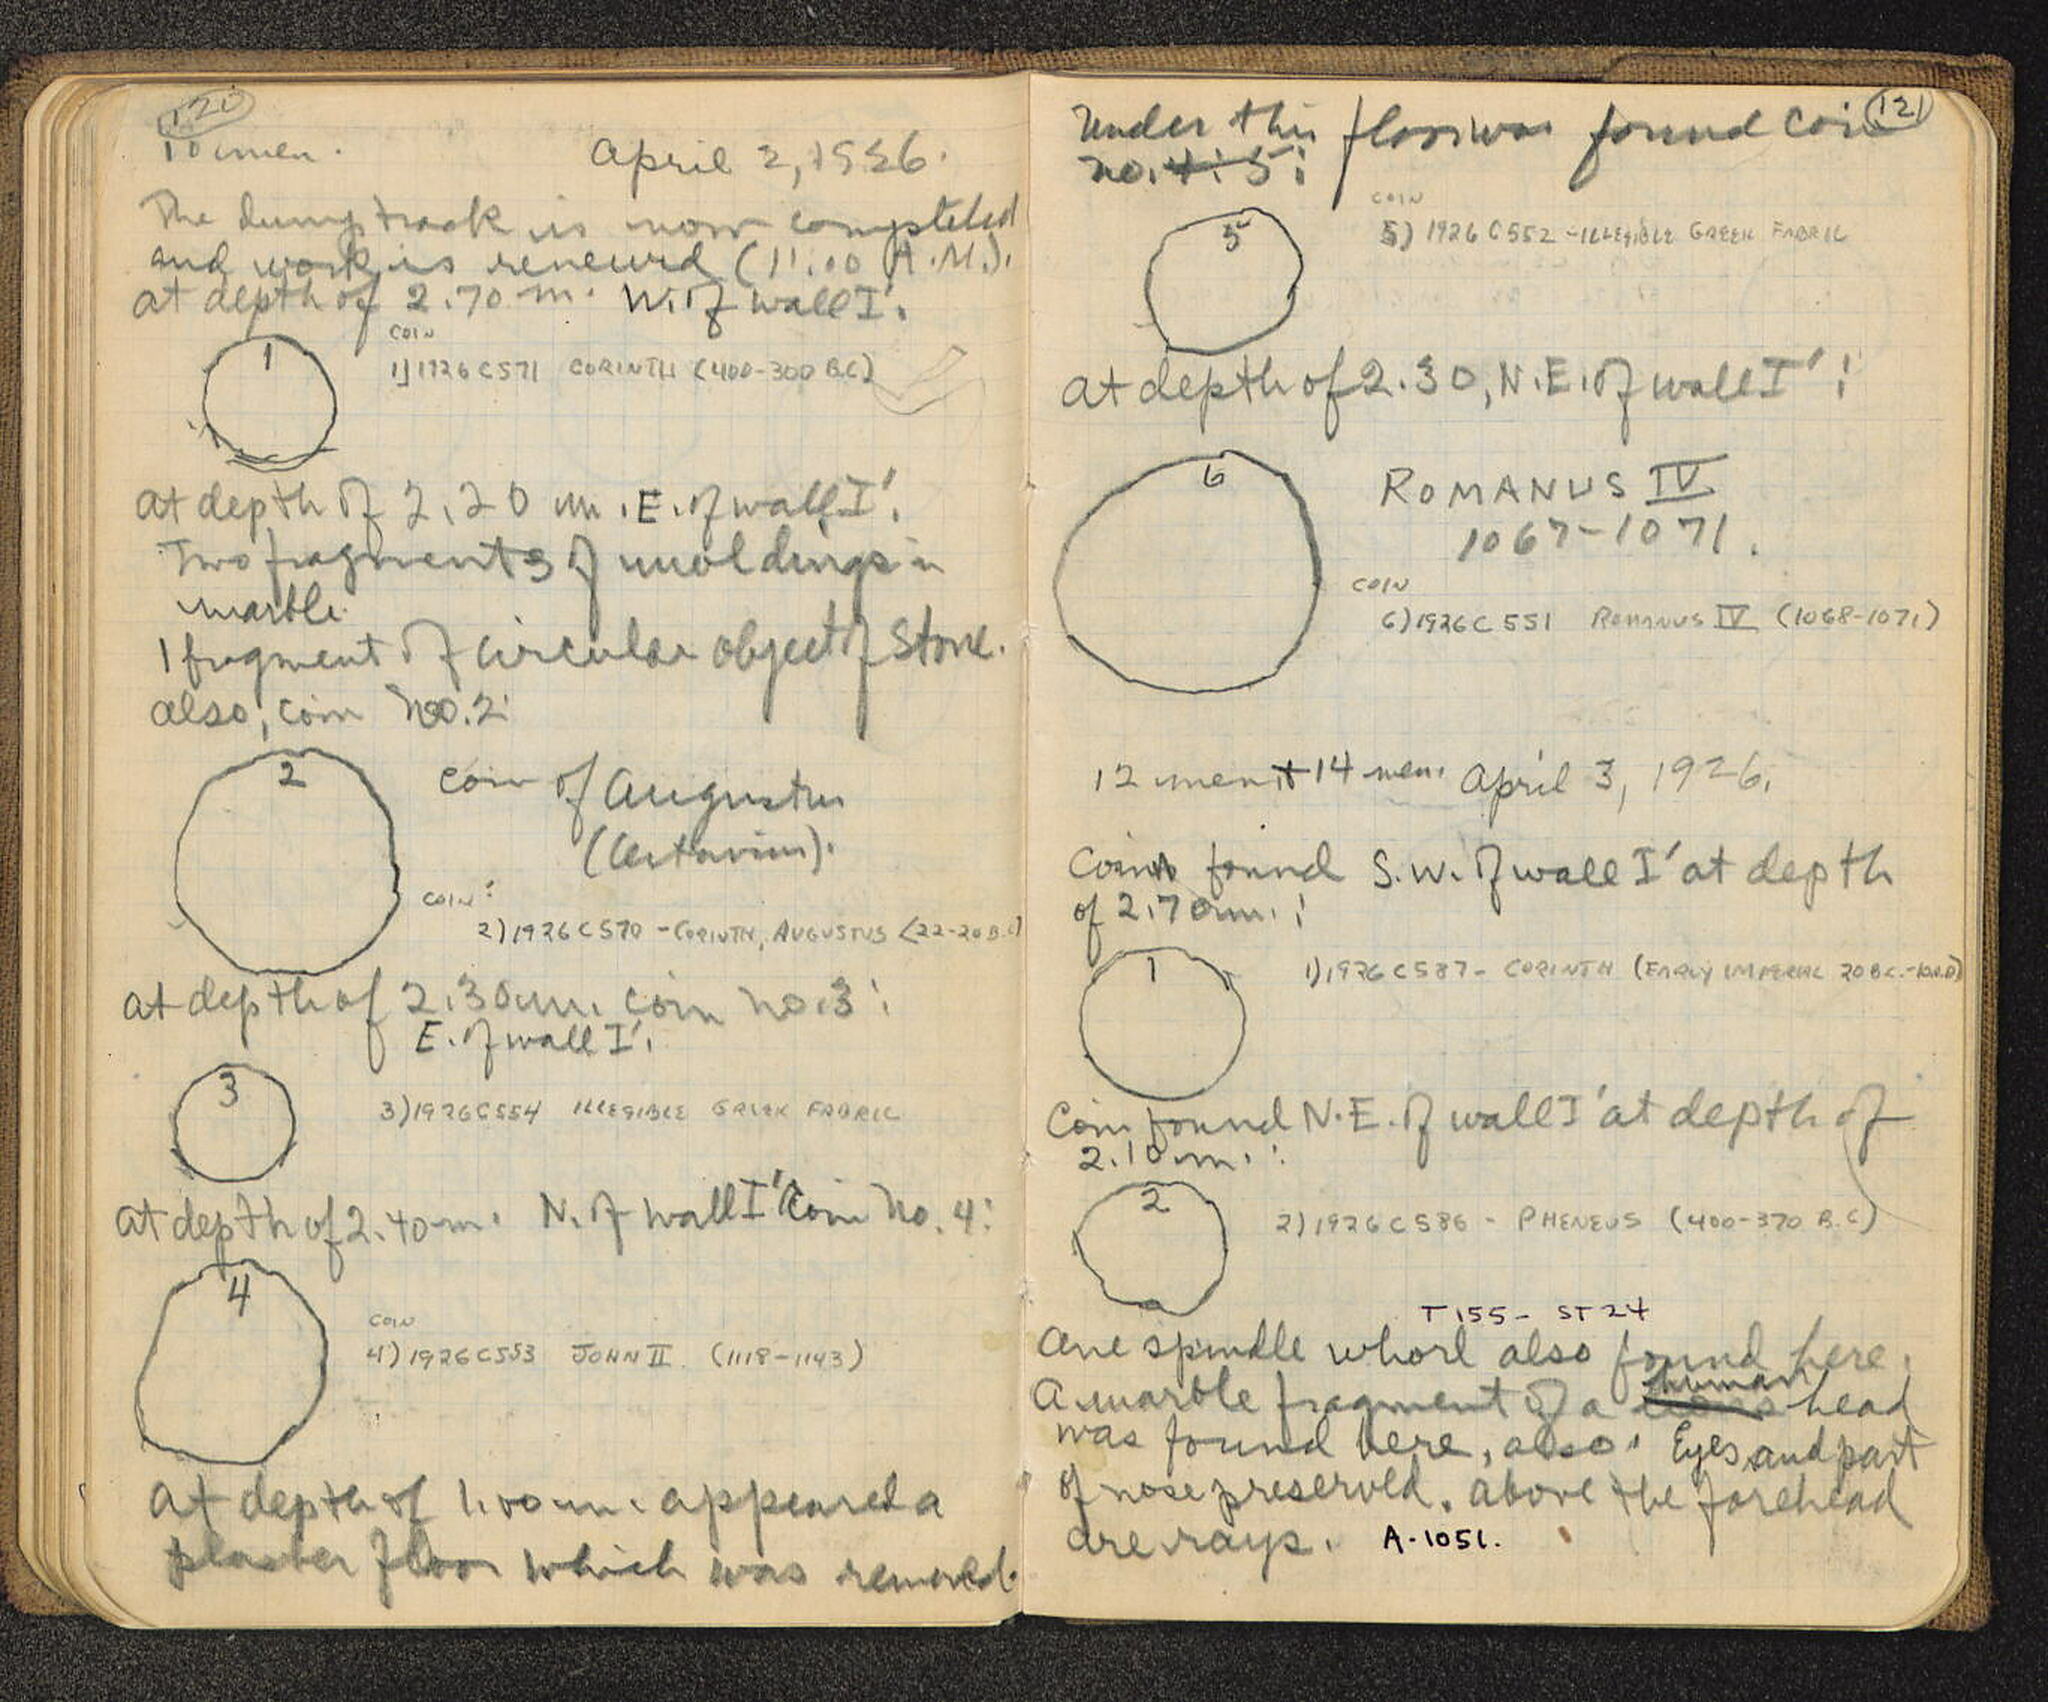 120
10 men.
April 2, 1926.
The dump track is now completed
and work is renewed (11.00 A.M.).
At depth of 2.70 m. W. of wall I'.
1
COIN
1) 1926 C571 CORINTH (400-300 B.C)
At depth of 2.20 m. E. of wall I'.
Two fragments of mouldings in
marble.
1 fragment of circular object of stone.
also, coin no. 2:
2
coin of Augustus
(Octavius).
COIN:
2) 1926 C570 - CORINTH, AUGUSTUS (22-20 B.C)
At depth of 2.30 m. coin no. 3:
E. of wall I'.
3
3) 1926 C554 ILLEGIBLE GREEK FABRIC
At depth of 2.40 m. N. of wall I' Coin no. 4:
4
COIN
4) 1926 C553 JOHN II (1118-1143)
At depth of 1.00 m. appeared a
plaster floor which was removed.
121
Under this floor was found coin
no. 4: 5:
5
COIN
5) 1926 C552 - ILLEGIBLE GREEK FABRIC
At depth of 2.30, N.E. of wall I':
6
ROMANUS IV
1067-1071.
COIN
6) 1926 C 551 ROMANUS IV (1068-1071)
12 men + 14 men. April 3, 1926.
Coin found S.W. of wall I' at depth
of 2.70 m.:
1
1) 1926 C587 - CORINTH (EARLY IMPERIAL 20 B.C.-10 A.D)
Coin found N.E. of wall I' at depth of
2.10 m.:
2
2) 1926 C586 - PHENEUS (400-370 B.C)
T 155 - ST 24
One spindle whorl also found here.
A marble fragment of a human head
was found here, also. Eyes and part
of nose preserved. Above the forehead
are rays. A-1051.